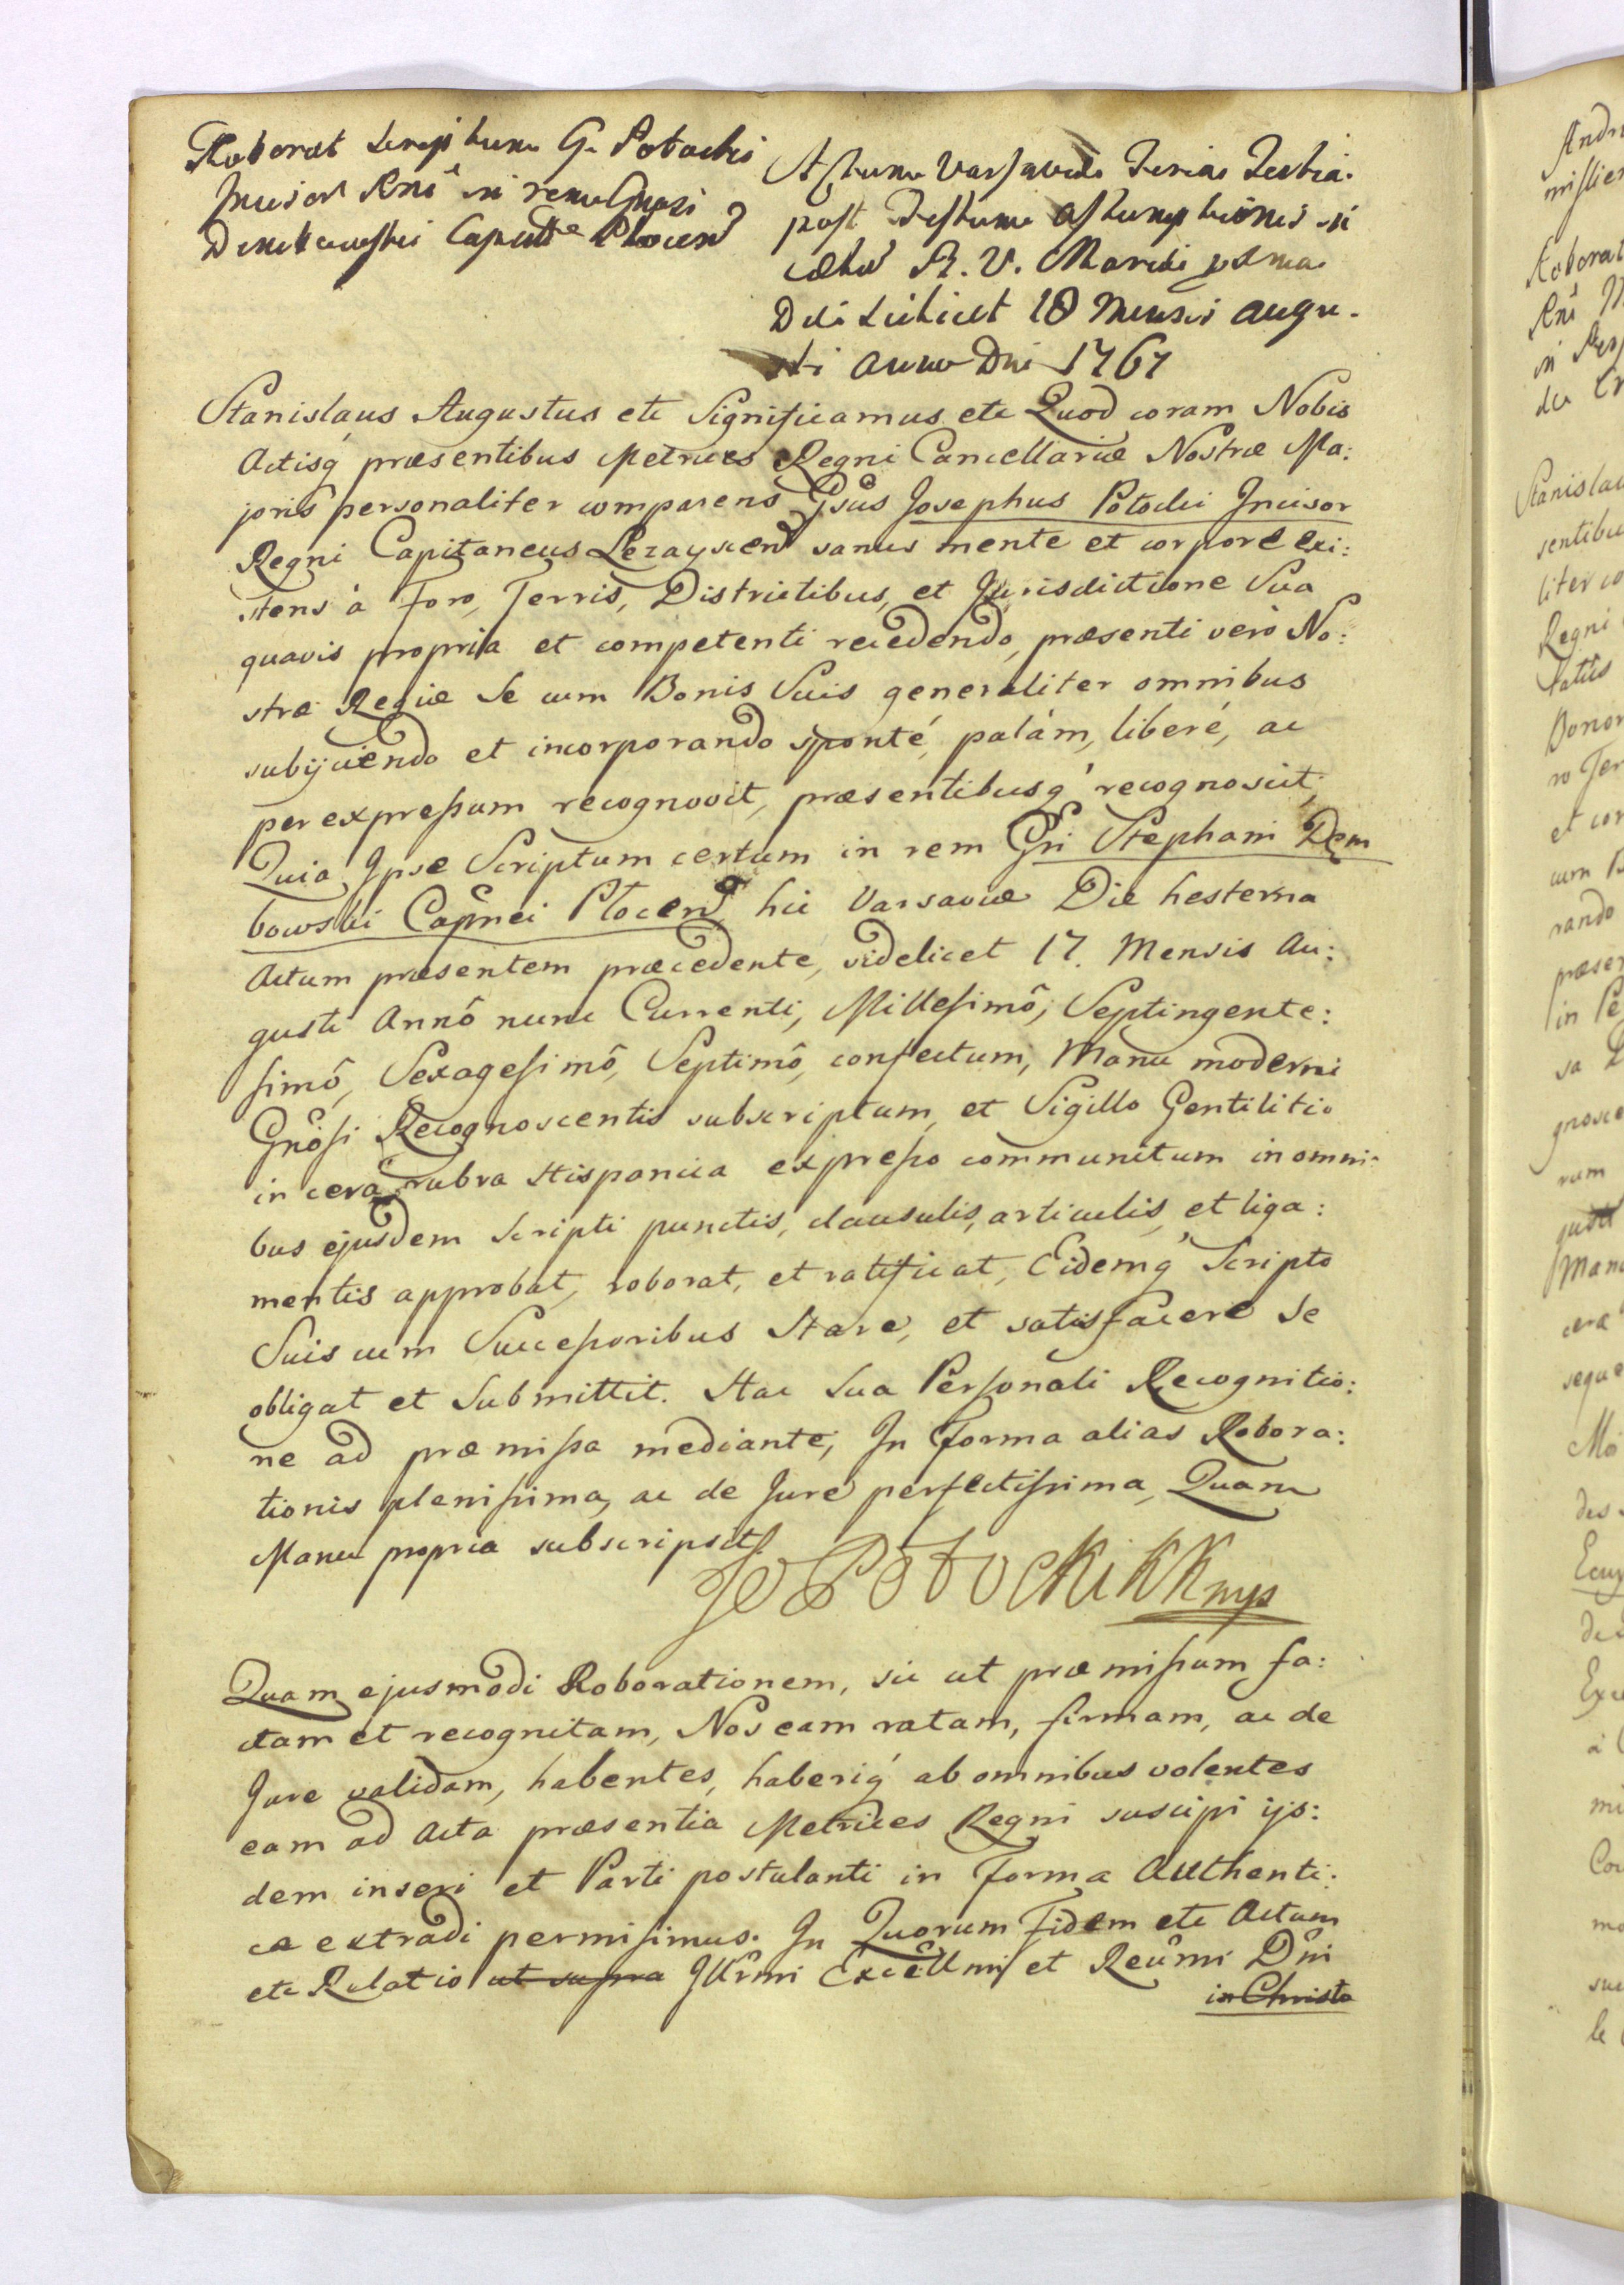 Roborat Scriptum G. Potocki
Incisor Rni in rem Gnosi
Dembowski Capnei Plocen
Actum Varsaviæ Feria Tertia
post Festum Assumptionis in
cœlū B. V. Mariæ
Die scilicet 18 Mensis Augu-
sti Anno Dni 1767
Stanislaus Augustus etc Significamus etc Quod coram Nobis
Actisq præsentibus Metrices Regni Cancellariæ Nostræ Ma:
joris personaliter comparens Gsus Josephus Potocki Incisor
Regni Capitaneus Lezayscen sanus mente et corpore exi:
stens à Foro, Terris, Districtibus, et Jurisdictione Sua
quavis propria et competenti recedendo, præsenti verò No:
stræ Regiæ Se cum Bonis Suis generaliter omnibus
subijciendo et incorporando sponté, palám, liberé, ac
per expressum recognovit, præsentibusq recognoscit,
Quia Ipse Scriptum certum in rem Gñi Stephani Dęm
bowski Capnei Plocen hic Varsaviæ Die hesterna
Actum præsentem præcedente, videlicet 17. Mensis Au:
gusti Annô nunc Currenti, Millesimô, Septingente:
simô, Sexagesimô, Septimô, confectum, Manu moderni
Gnosi Recognoscentis subscriptum, et Sigillo Gentilitio
in cera rubra Hispanica expresso communitum in omni:
bus ejusdem Scripti punctis, clausulis, articulis, et liga:
mentis approbat, roborat, et ratificat, Eidemq Scripto
Suis cum Successoribus Stare, et satisfacere Se
obligat et Submittit. Hac Sua Personali Recognitio:
ne ad præmissa mediante, In Forma alias Robora:
tionis plenissima, ac de Jure perfectissima, Quam
Manu propria subscripsit.
Jo Potocki KK mp
Quam ejusmodi Roborationem, sic ut præmissum fa:
ctam et recognitam, Nos eam ratam, firmam, ac de
Jure validam, habentes, haberiq ab omnibus volentes
eam ad Acta præsentia Metrices Regni suscipi ijs:
dem inseri et Parti postulanti in Forma Authenti:
ca extradi permisimus. In Quorum Fidem etc Actum
etc Relatio ut supra Illrmi Excellmi et Reûmi Dñi
in Christo